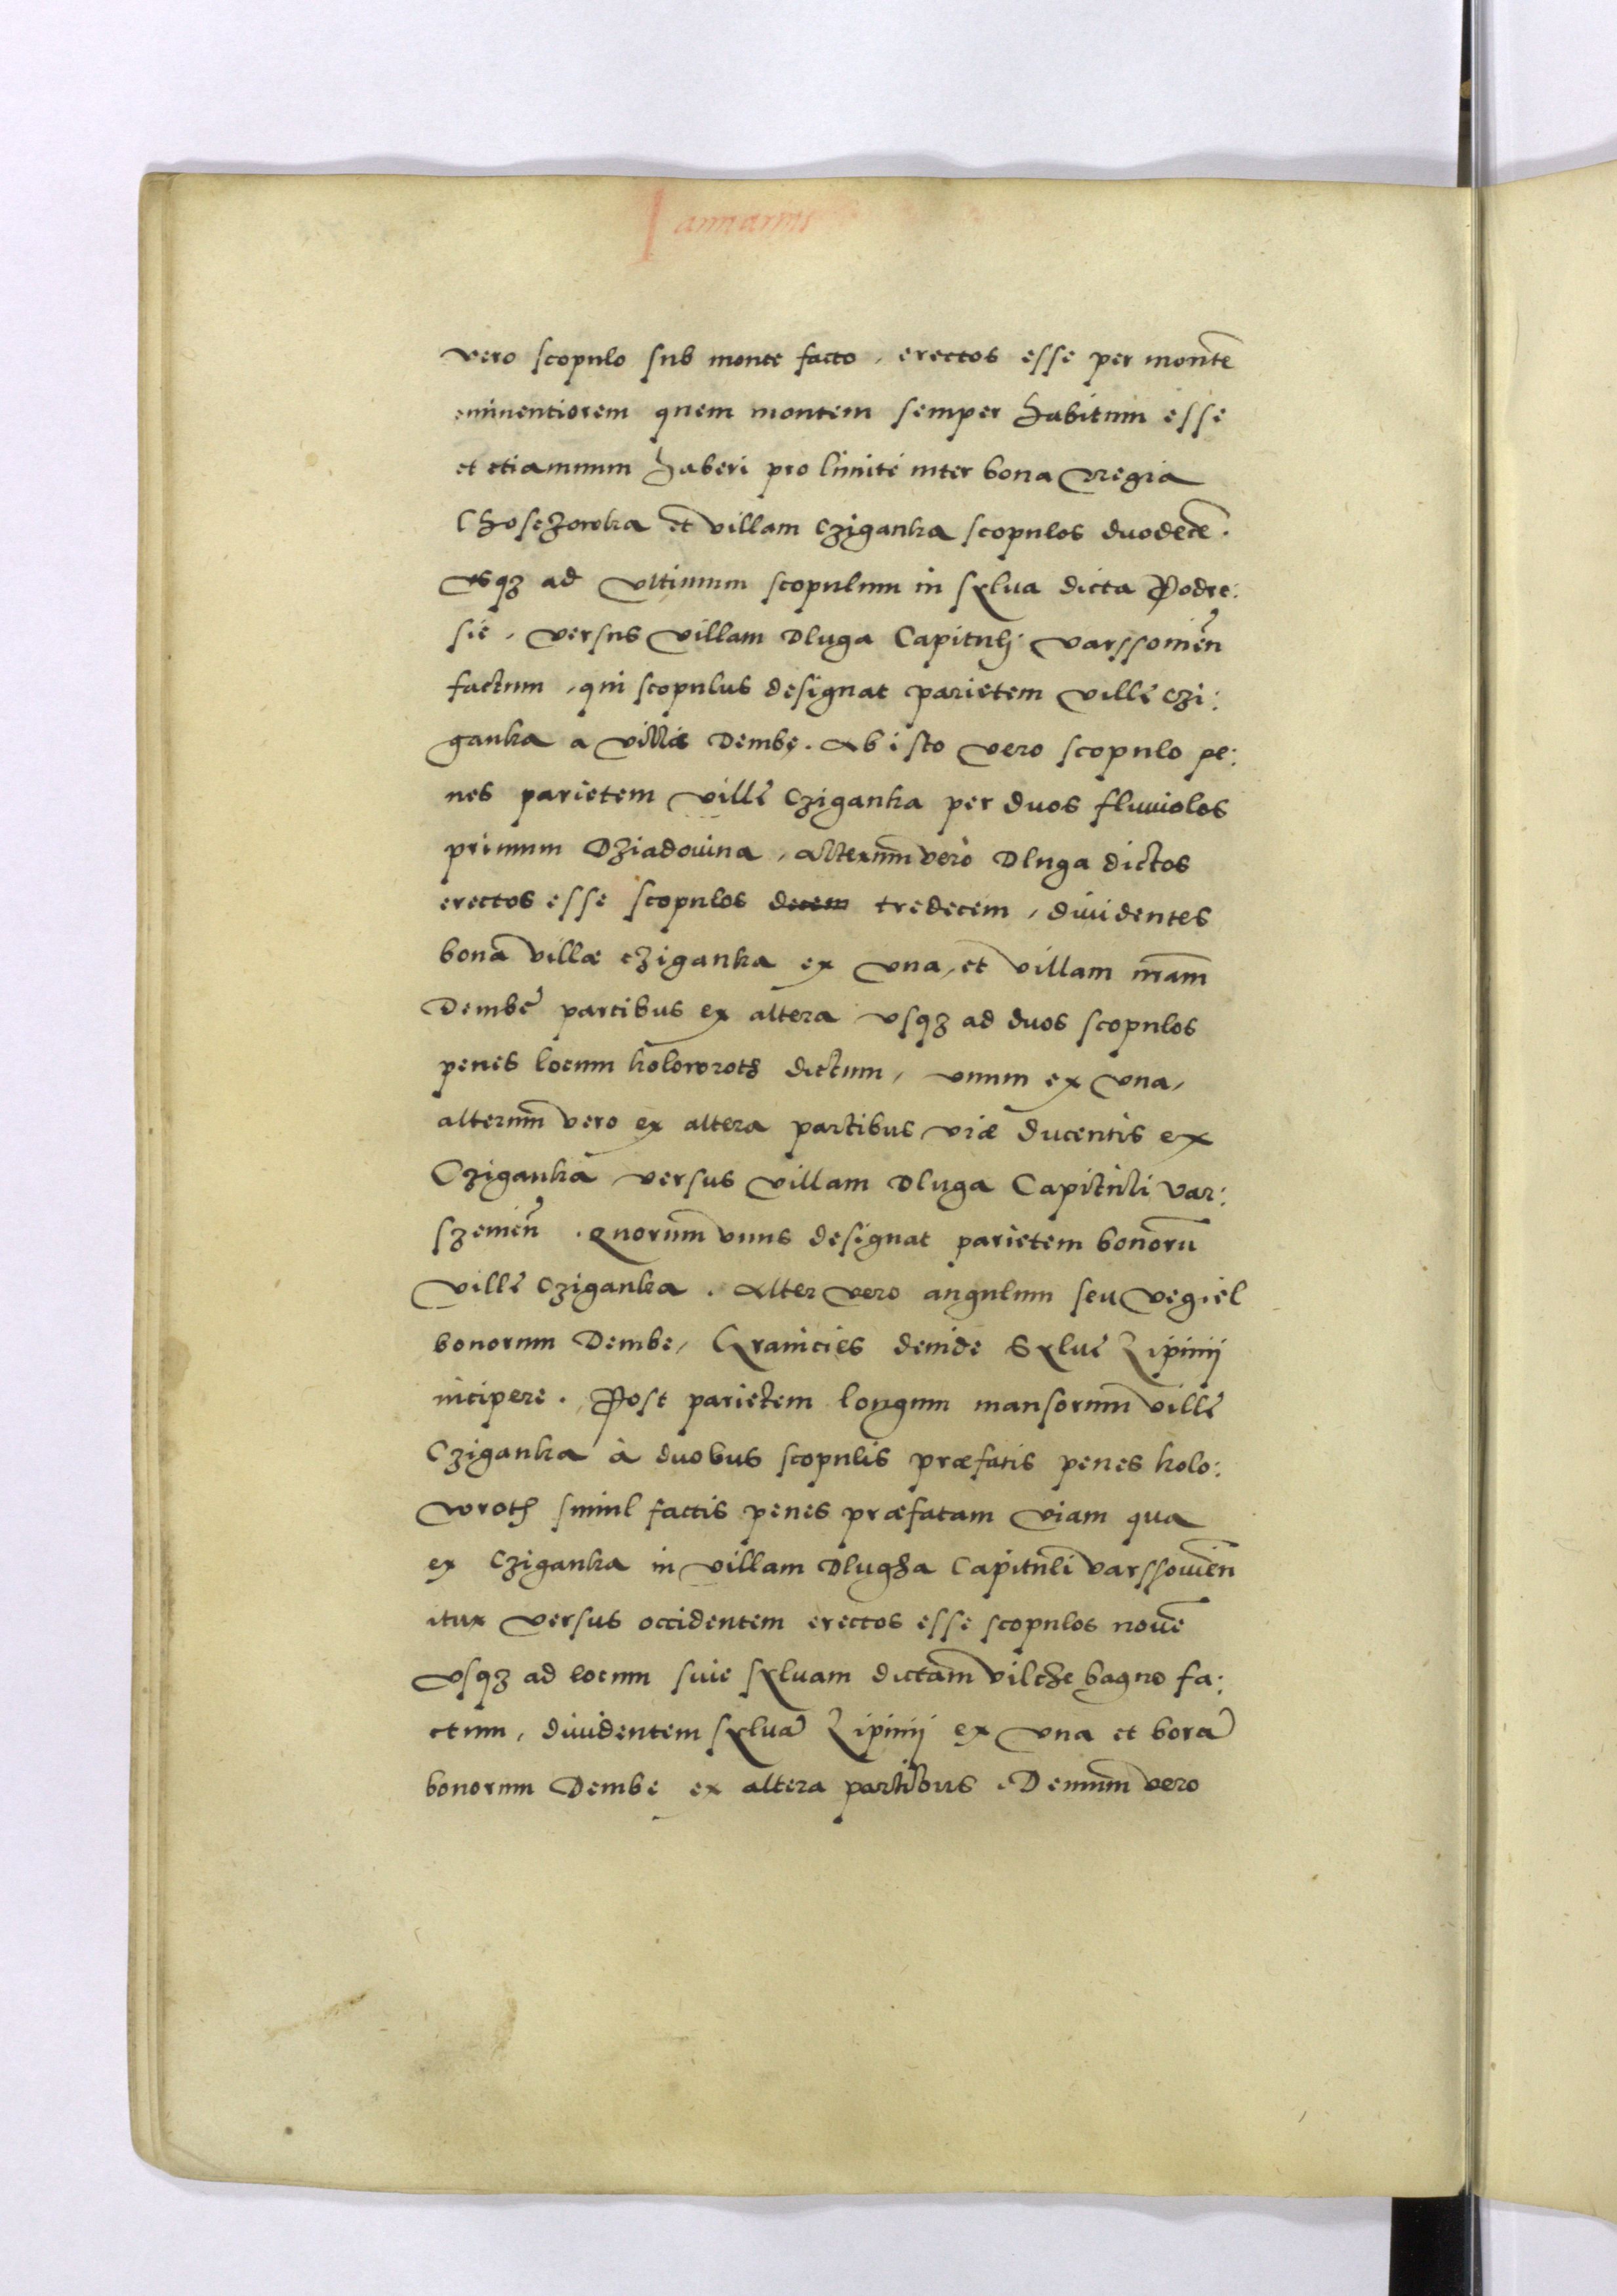 Januarius
vero scopulo sub monte facto, erectos esse per montē
eminentiorem quem montem semper habitum esse
et etiamnum haberi pro limite inter bona Regia
Chosczowka et villam Cziganka scopulos duodecē.
usqȝ ad ultimum scopulum in sylva dicta Podre:
sie, versus villam Dluga Capituli varssovien̄
factum, qui scopulus designat parietem villę Czi:
ganka a villa Dembę. Ab isto vero scopulo pe:
nes parietem villę Cziganka per duos fluviolos
primum Dziadovina, alterum vero Dluga dictos
erectos esse scopulos decem tredecem, dividentes
bona villæ Cziganka ex una, et villam
Dembe partibus ex altera usqȝ ad duos scopulos
penes locum kolowroth dictum, unum ex una,
alterum vero ex altera partibus viæ ducentis ex
Cziganka versus villam Dluga Capituli var:
szevien̄. Quorum unus designat parietem bonorū
villę Cziganka. Alter vero angulum seu vegiel
bonorum Dembe, Granicies deinde Sylvę Lipinij
incipere. Post parietem longum mansorum villę
Cziganka à duobus scopulis præfatis penes kolo:
wroth simul factis penes præfatam viam qua
ex Cziganka in villam Dlugha Capituli varssovien̄
itur versus occidentem erectos esse scopulos novē
usqȝ ad locum sive sylvam dictam vilcze bagno fa:
ctum, dividentem sylvā Lipinij ex una et borā
bonorum Dembe ex altera partibus. Demum vero